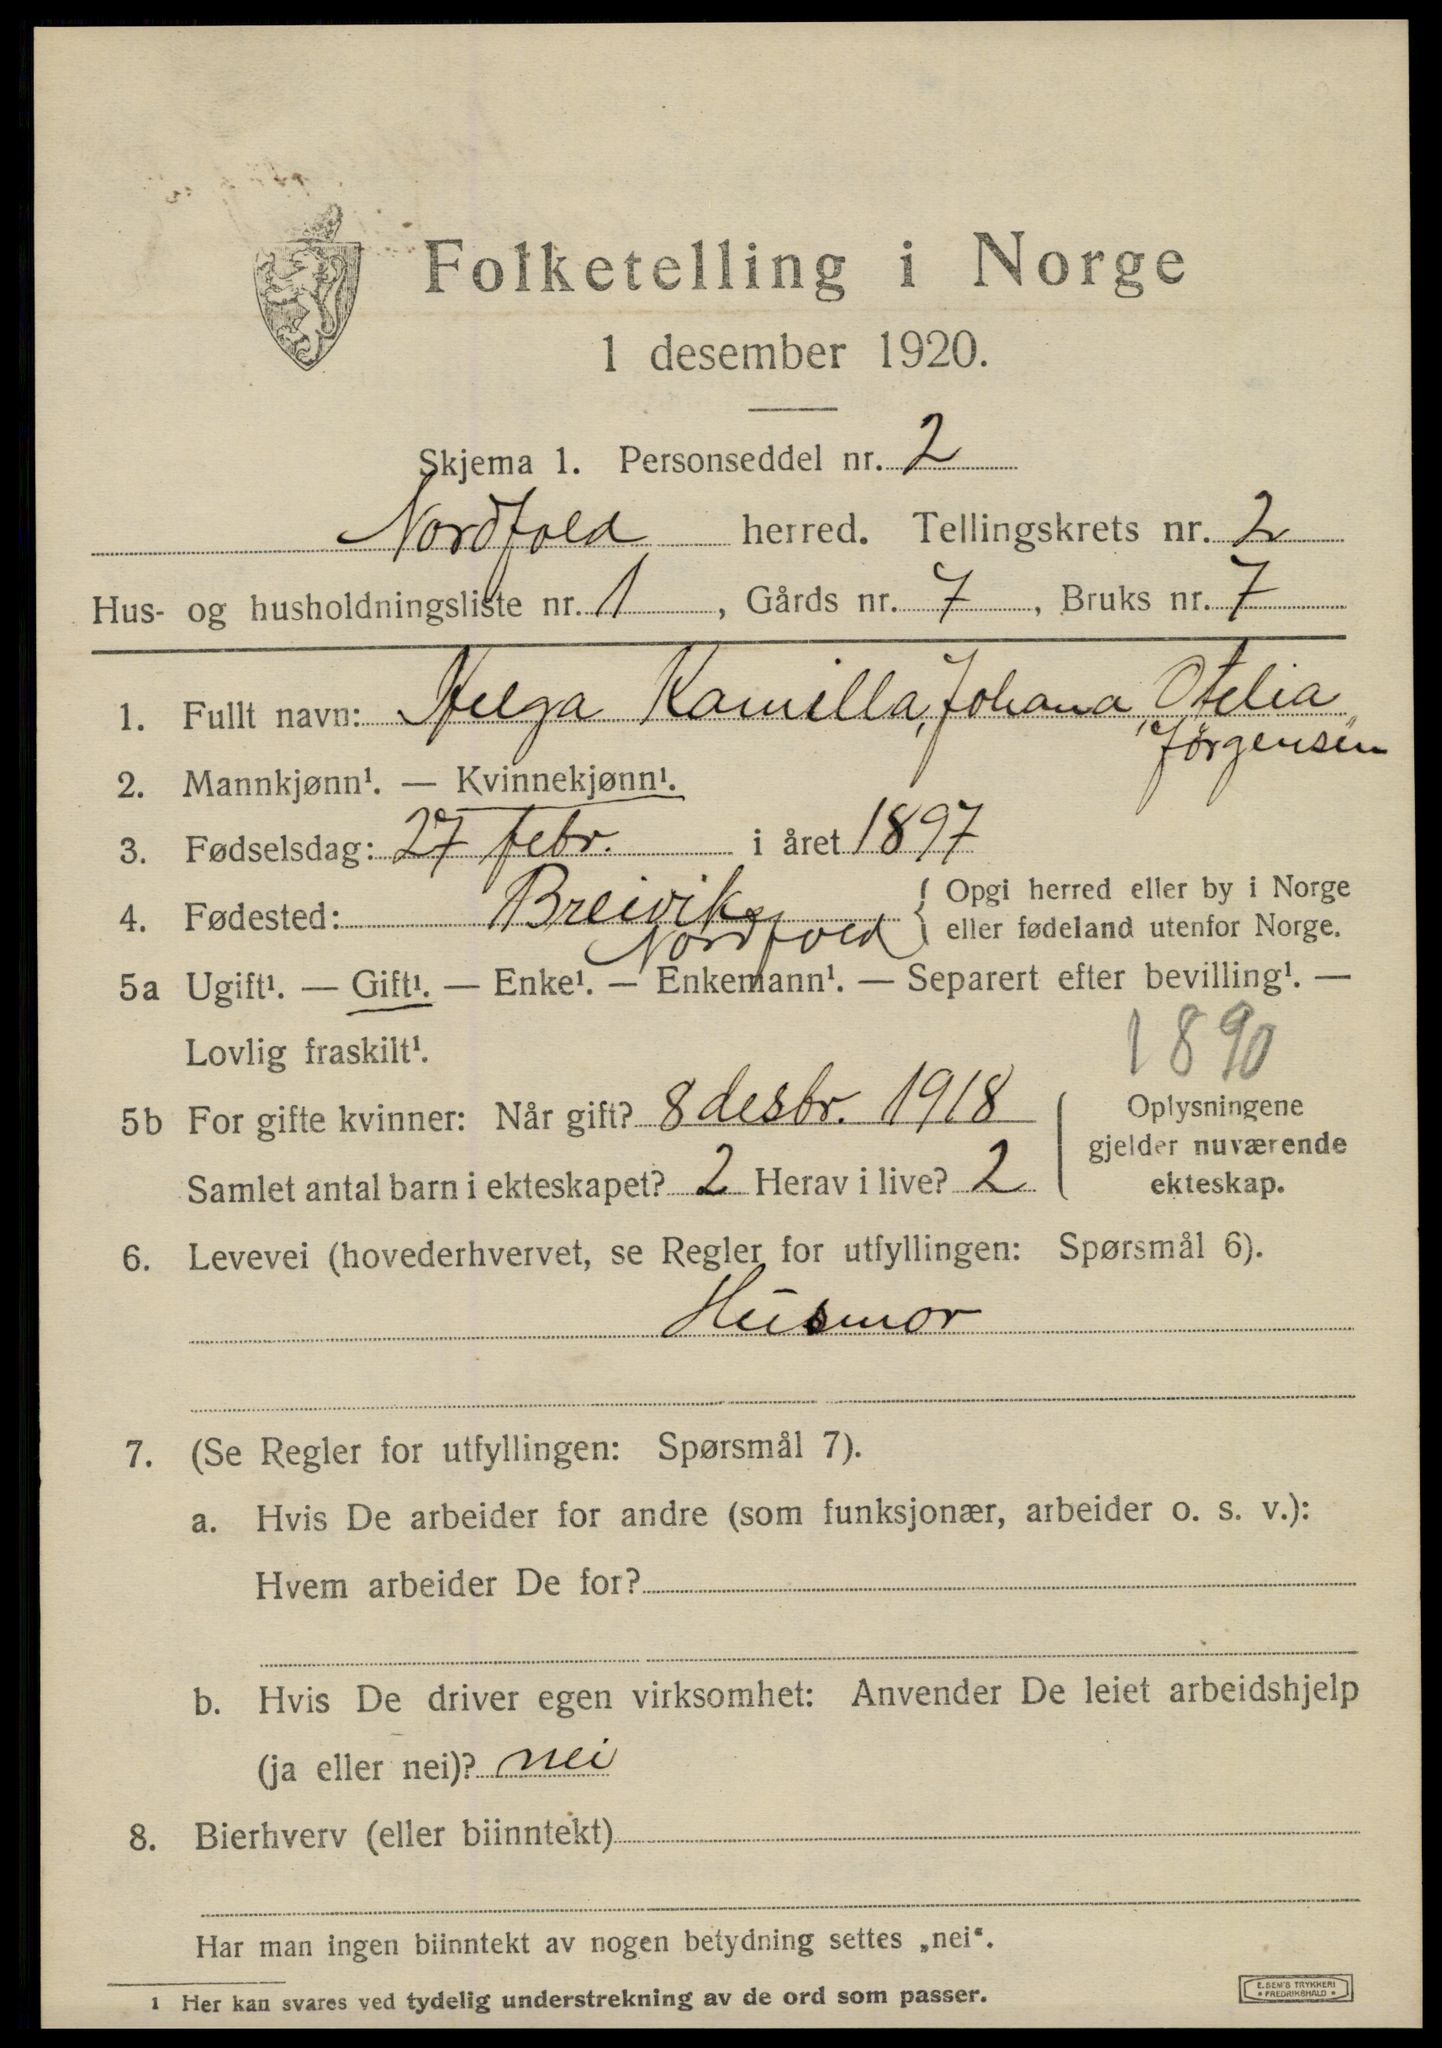 Folketelling i Norge
1 desember 1920.
Skjema 1. Personseddel nr. 2
Nordfold herred. Tellingskrets nr. 2
Hus- og husholdningsliste nr. 1, Gårds nr. 7, Bruks nr. 7
1. Fullt navn: Helga Kamilla, Johana Otelia
"Jørgensen"
2. Mannkjønn¹. — Kvinnekjønn¹.
3. Fødselsdag: 27 febr. i året 1897
4. Fødested: Breivik { Opgi herred eller by i Norge
Nordfold eller fødeland utenfor Norge.
5a Ugift¹. — Gift¹. — Enke¹. — Enkemann¹. — Separert efter bevilling¹. —
Lovlig fraskilt¹. 1890
5b For gifte kvinner: Når gift? 8 desbr. 1918 Oplysningene
gjelder nuværende
Samlet antal barn i ekteskapet? 2 Herav i live? 2 ekteskap.
6. Levevei (hovederhvervet, se Regler for utfyllingen: Spørsmål 6).
Husmor
7. (Se Regler for utfyllingen: Spørsmål 7).
a. Hvis De arbeider for andre (som funksjonær, arbeider o. s. v.):
Hvem arbeider De for?
b. Hvis De driver egen virksomhet: Anvender De leiet arbeidshjelp
(ja eller nei)? nei
8. Bierhverv (eller biinntekt)
Har man ingen biinntekt av nogen betydning settes „nei“.
1 Her kan svares ved tydelig understrekning av de ord som passer.
E. SEM'S TRYKKERI
• FREDRIKSHALD •